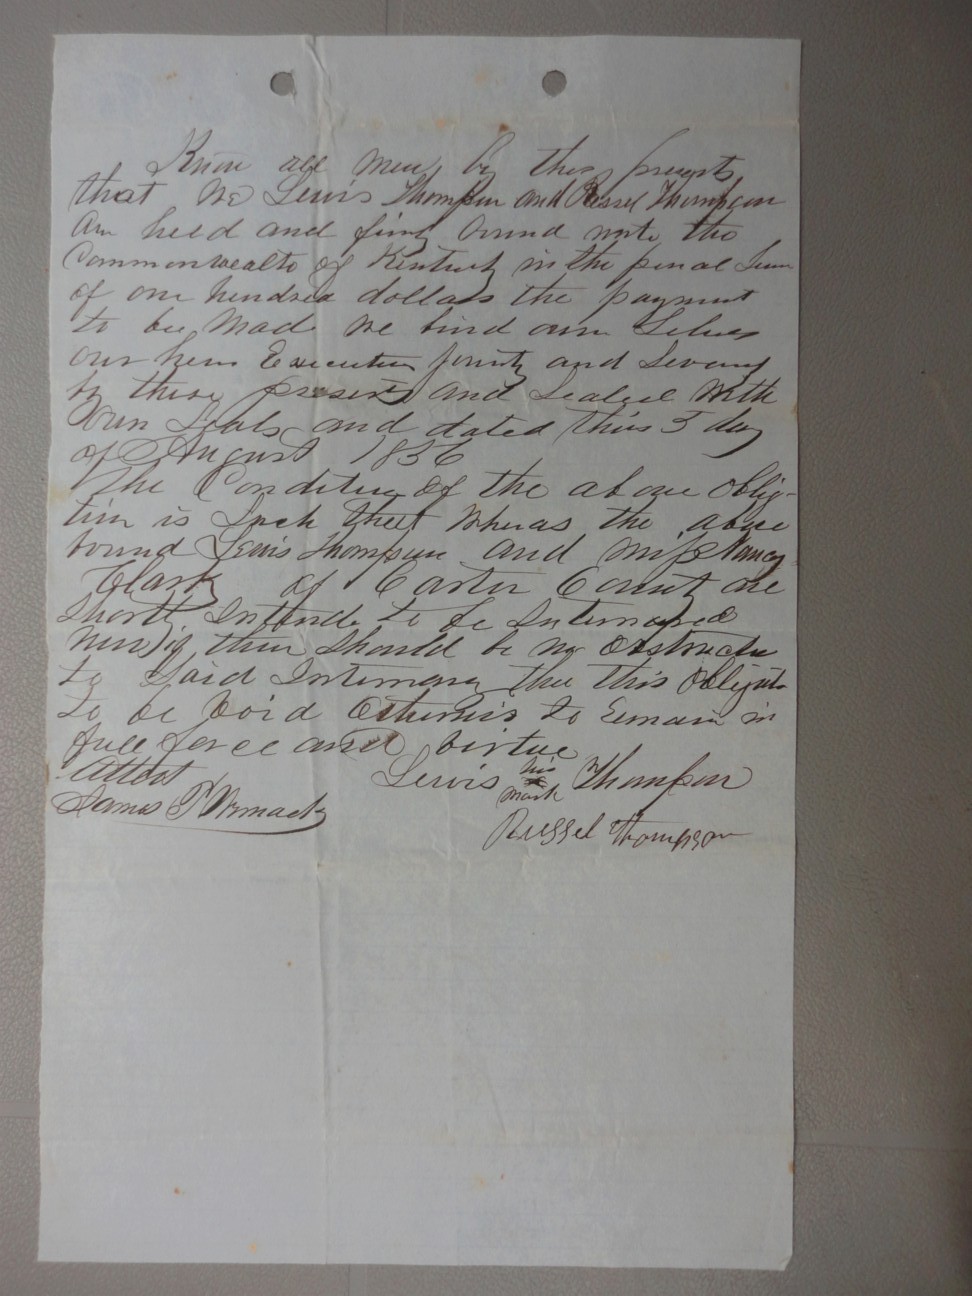 Know all men by these presents
that We Lewis Thompson and Russel Thompson
are held and firmly bound unto the
Commonwealth of Kentucky in the penal Sum
of one hundred dollars the payment
to be Made we bind our Selves
our heirs Executors jointly and Severly
by these presents and Sealed with
our Seals and dated this 5 day
of August 1856
The Condition of the above oblig-
tion is Such that wheras the above
bound Lewis Thompson and miss Nancy
Clark of Carter County are
Shortly Intende to be Intermared
Now if there Should be no obstructn
to Said Intermary the this obligatn
to be Void Otherwis to Remain in
full force and virtue
Attest Lewis his mark Thompson
James P Womack
Russel Thompson